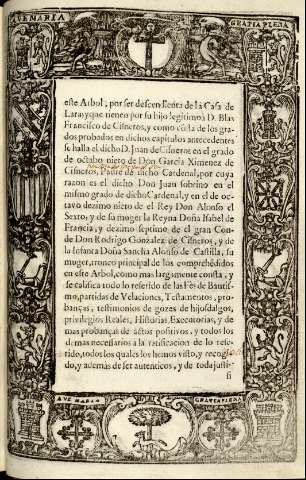 AVE MARIA
GRATIA PLENA
este Arbol, por ser descendienta de la Casa de
Lara, y que tienen por su hijo legitimo à D. Blas
Francisco de Cisneros, y como cōsta de los gra-
dos probados en dichos capitulos antecedentes
se halla el dicho D. Juan de Cisneros en el grado
de octabo nieto de Don Garcia Ximenez de
Cisneros, Padre de dicho Cardenal, por cuya
razon es el dicho Don Juan sobrino en el
mismo grado de dicho Cardenal, y en el de oc-
tavo dezimo nieto de el Rey Don Alonso el
Sexto, y de su muger la Reyna Doña Isabel de
Francia, y dezimo septimo de el gran Con-
de Don Rodrigo Gonzalez de Cisneros, y de
la Infanta Doña Sancha Alonso de Castilla, su
muger, tronco principal de los comprehēdidos
en este Arbol, como mas largamente consta, y
se califica todo lo referido de las Fès de Bautis-
mo, partidas de Velaciones, Testamentos, pro-
banças, testimonios de gozes de hijosdalgos,
privilegios Reales, Historias, Executorias, y de
mas probanças de actos positivos, y todos los
demas necessarios à la ratificacion de lo refe-
rido, todos los quales hemos visto, y recogi-
do, y ademàs de ser autenticos, y de toda justi-
fi
AVE MARIA
GRATIA PLENA